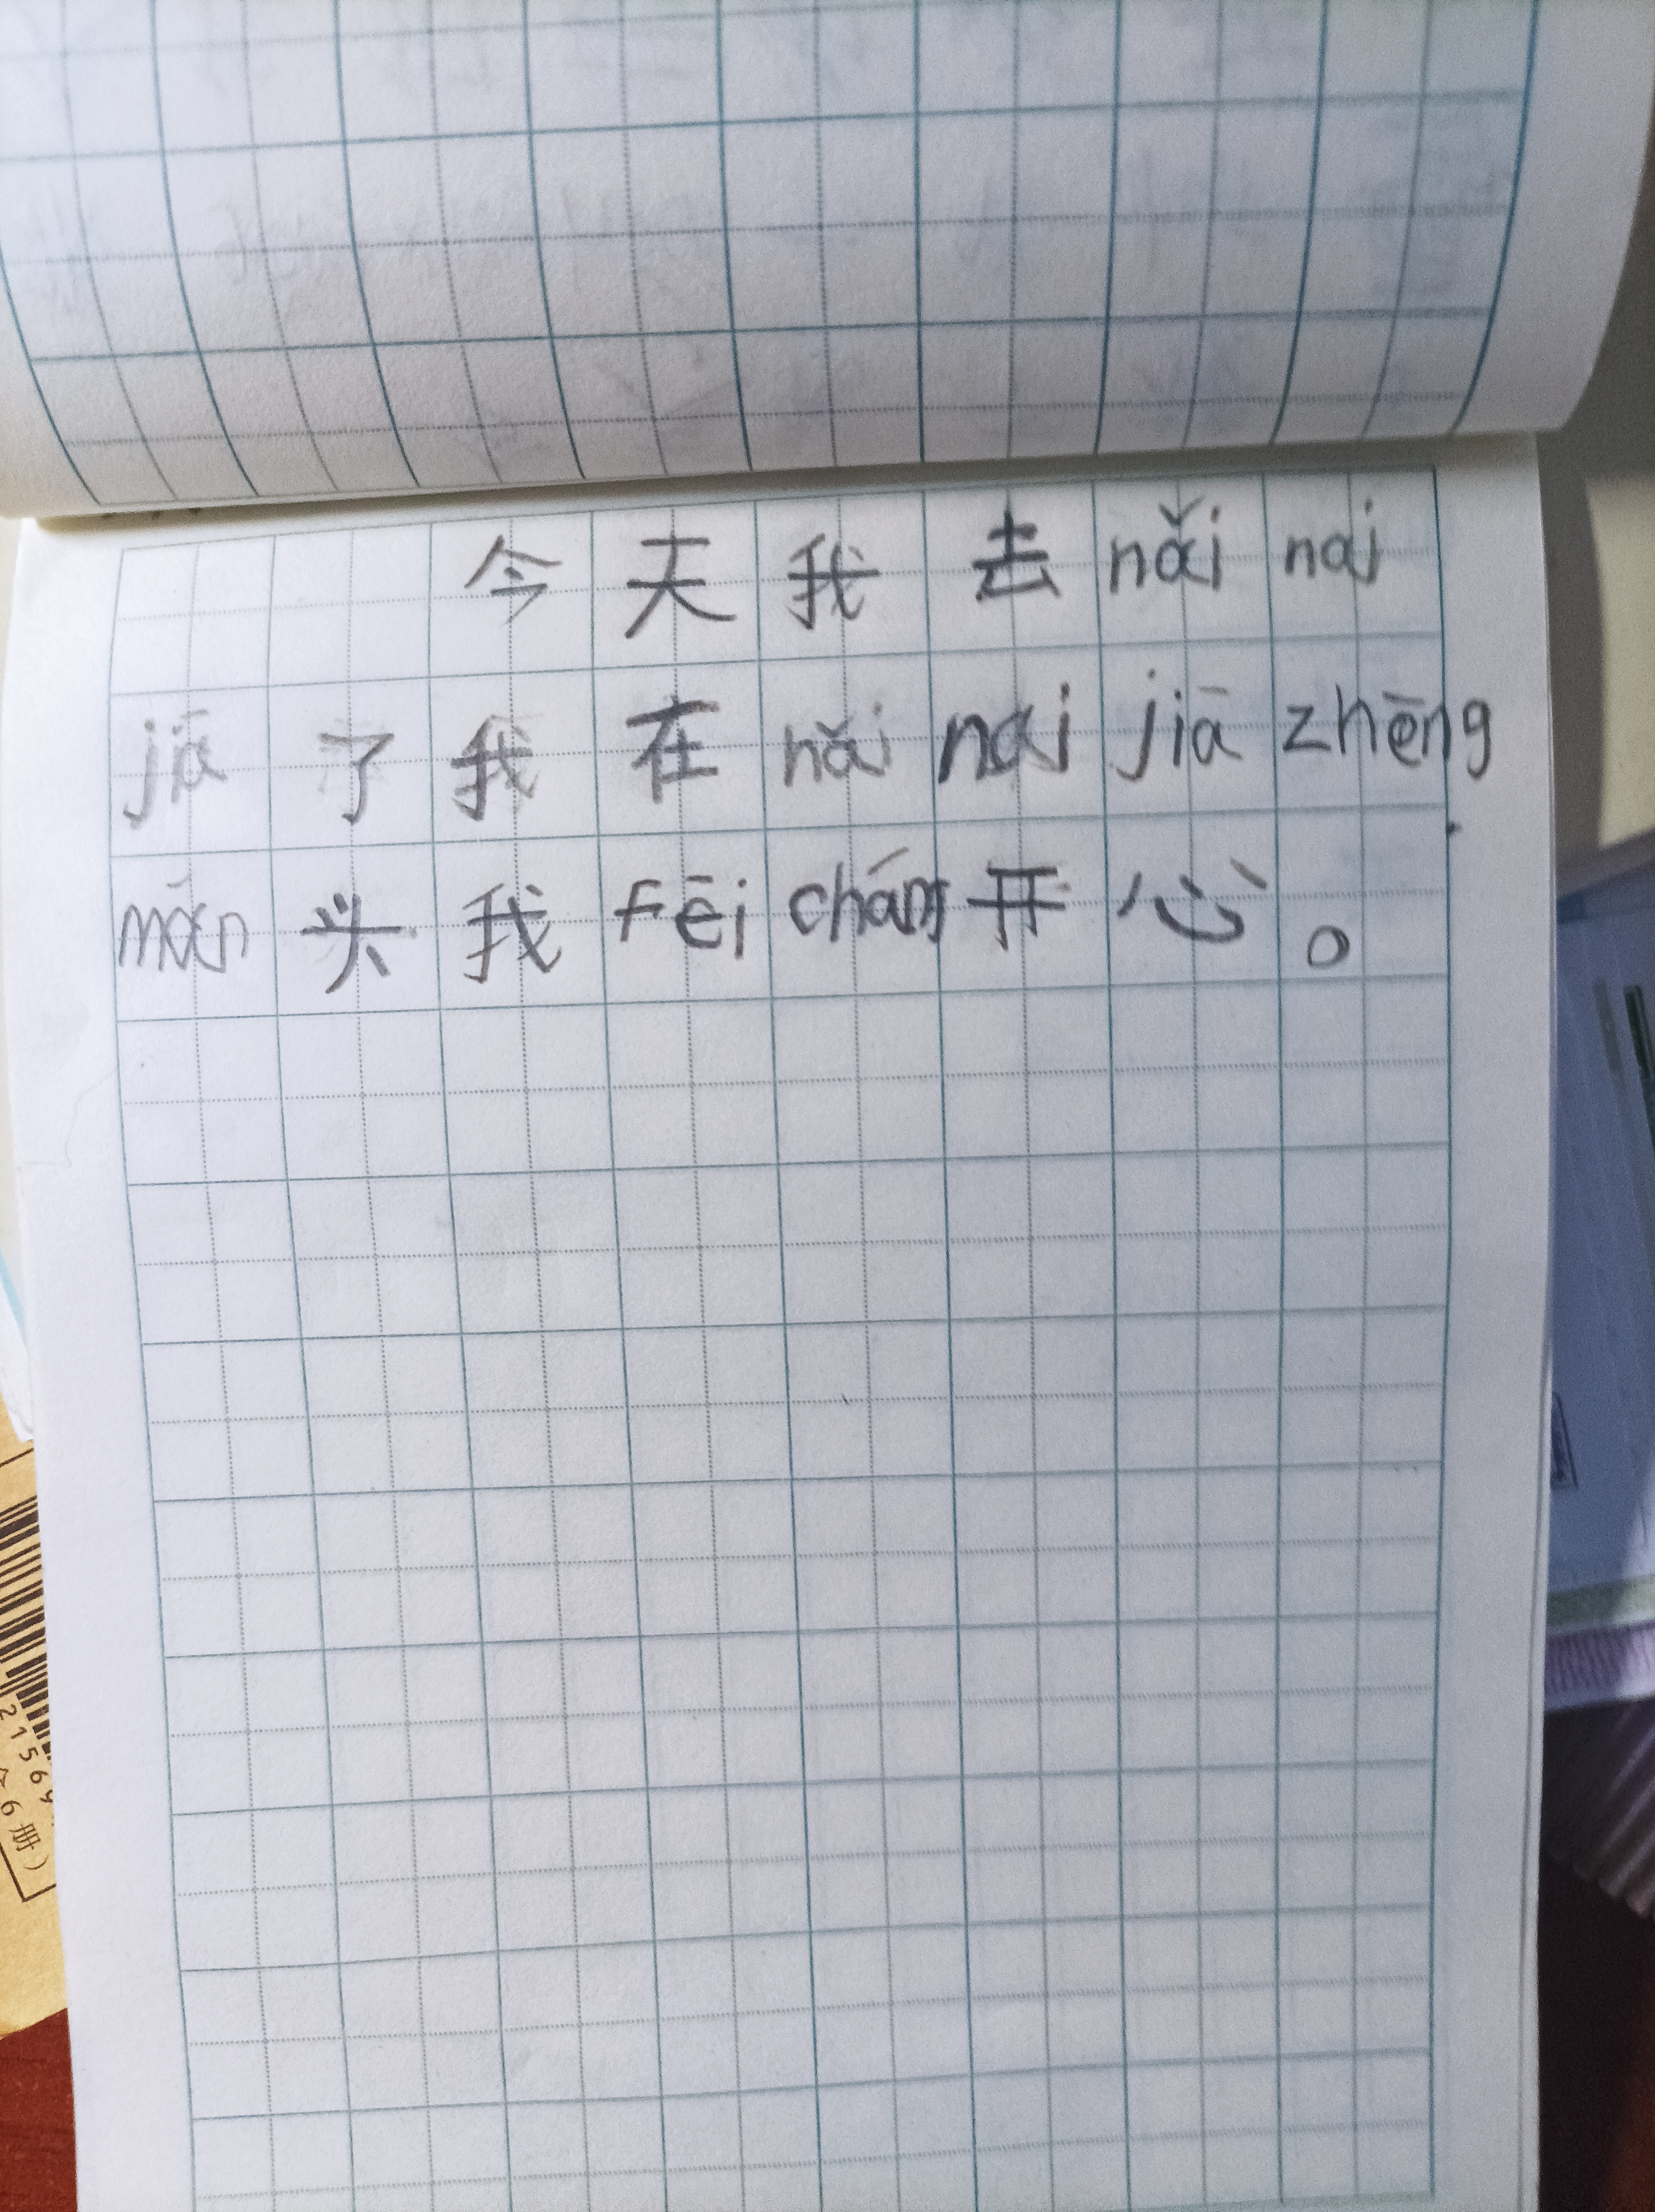 今天我去nǎi nai
jiā了我在nǎi nai jiā zhēng
mǎn头我fēi cháng开心。
21569
6册）